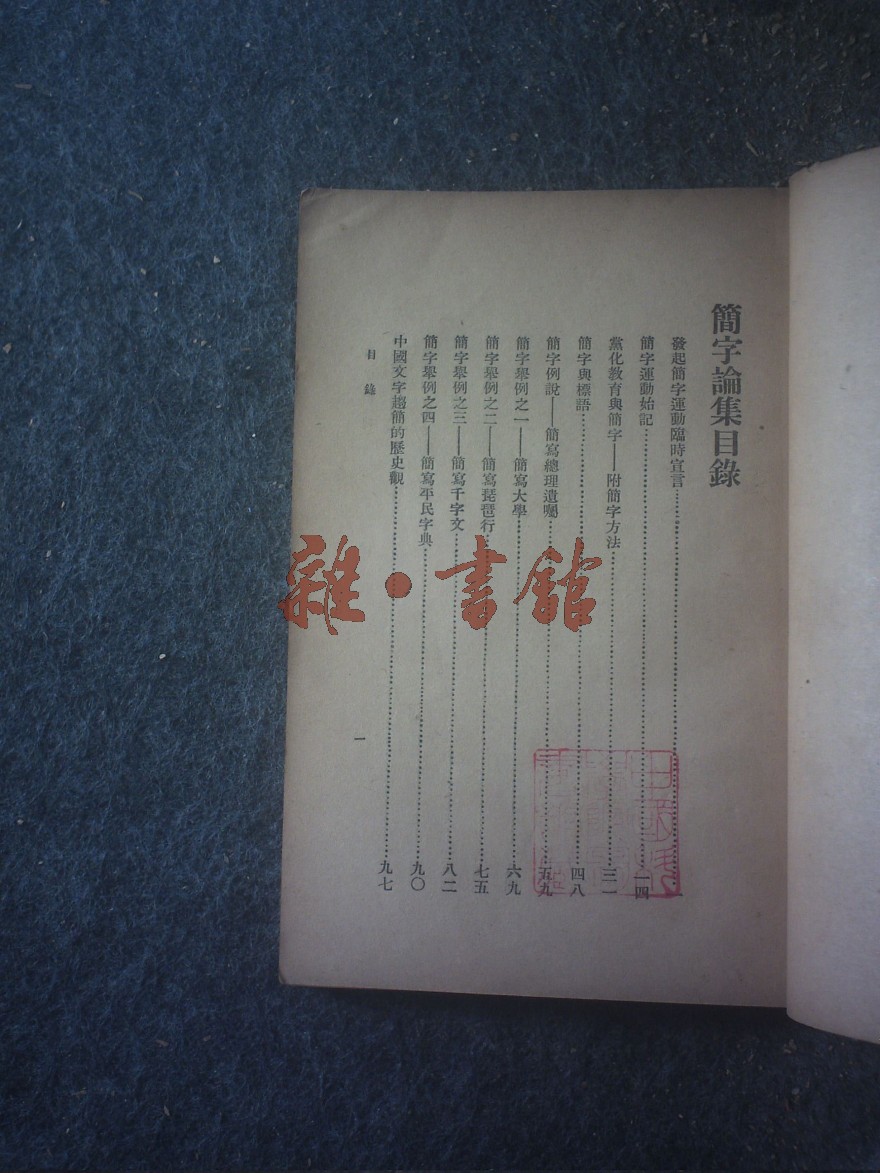 簡字論集目錄
發起簡字運動臨時宣言……一
簡字運動始記……一四
黨化教育與簡字——附簡字方法……三一
簡字與標語……四八
簡字例說——簡寫總理遺囑……五九
簡字舉例之一——簡寫大學……六九
簡字舉例之二——簡寫琵琶行……七五
簡字舉例之三——簡寫千字文……八二
簡字舉例之四——簡寫平民字典……九〇
中國文字趨簡的歷史觀……九七
目錄
一
雜·書館